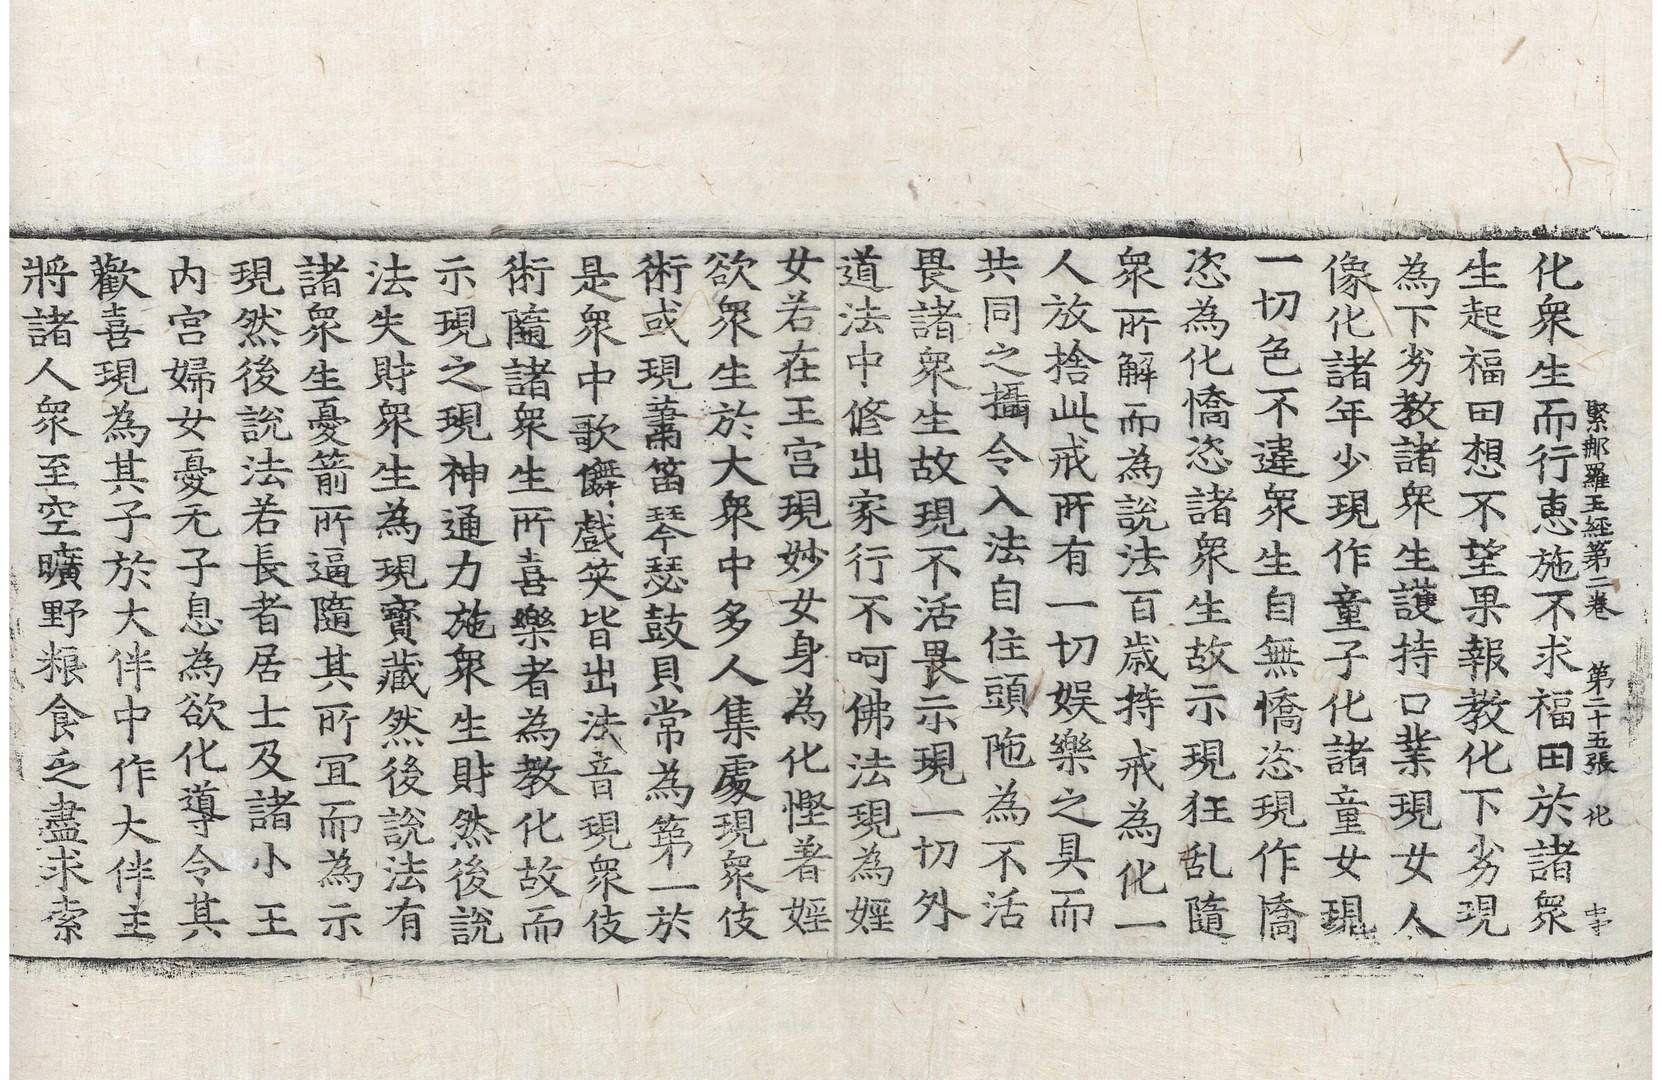 緊那羅王經第二卷　第二十五張　化
化衆生而行恵施不求福田於諸衆
生起福田想不望果報教化下劣現
為下劣教諸衆生護持口業現女人
像化諸年少現作童子化諸童女現
一切色不違衆生自無憍恣現作憍
恣為化憍恣諸衆生故示現狂乱隨
衆所解而為説法百歳持戒為化一
人放捨此戒所有一切娯樂之具而
共同之攝令入法自住頭陁為不活
畏諸衆生故現不活畏示現一切外
道法中修出家行不呵佛法現為婬
女若在王宮現妙女身為化慳著婬
欲衆生於大衆中多人集處現衆伎
術或現蕭笛琴瑟鼓貝常為第一於
是衆中歌儛戲笑皆出法音現衆伎
術隨諸衆生所喜樂者為教化故而
示現之現神通力施衆生財然後説
法失財衆生為現寳藏然後説法有
諸衆生憂箭所逼隨其所冝而為示
現然後説法若長者居士及諸小王
内宮婦女憂无子息為欲化導令其
歡喜現為其子於大伴中作大伴主
將諸人衆至空曠野粮食乏盡求索